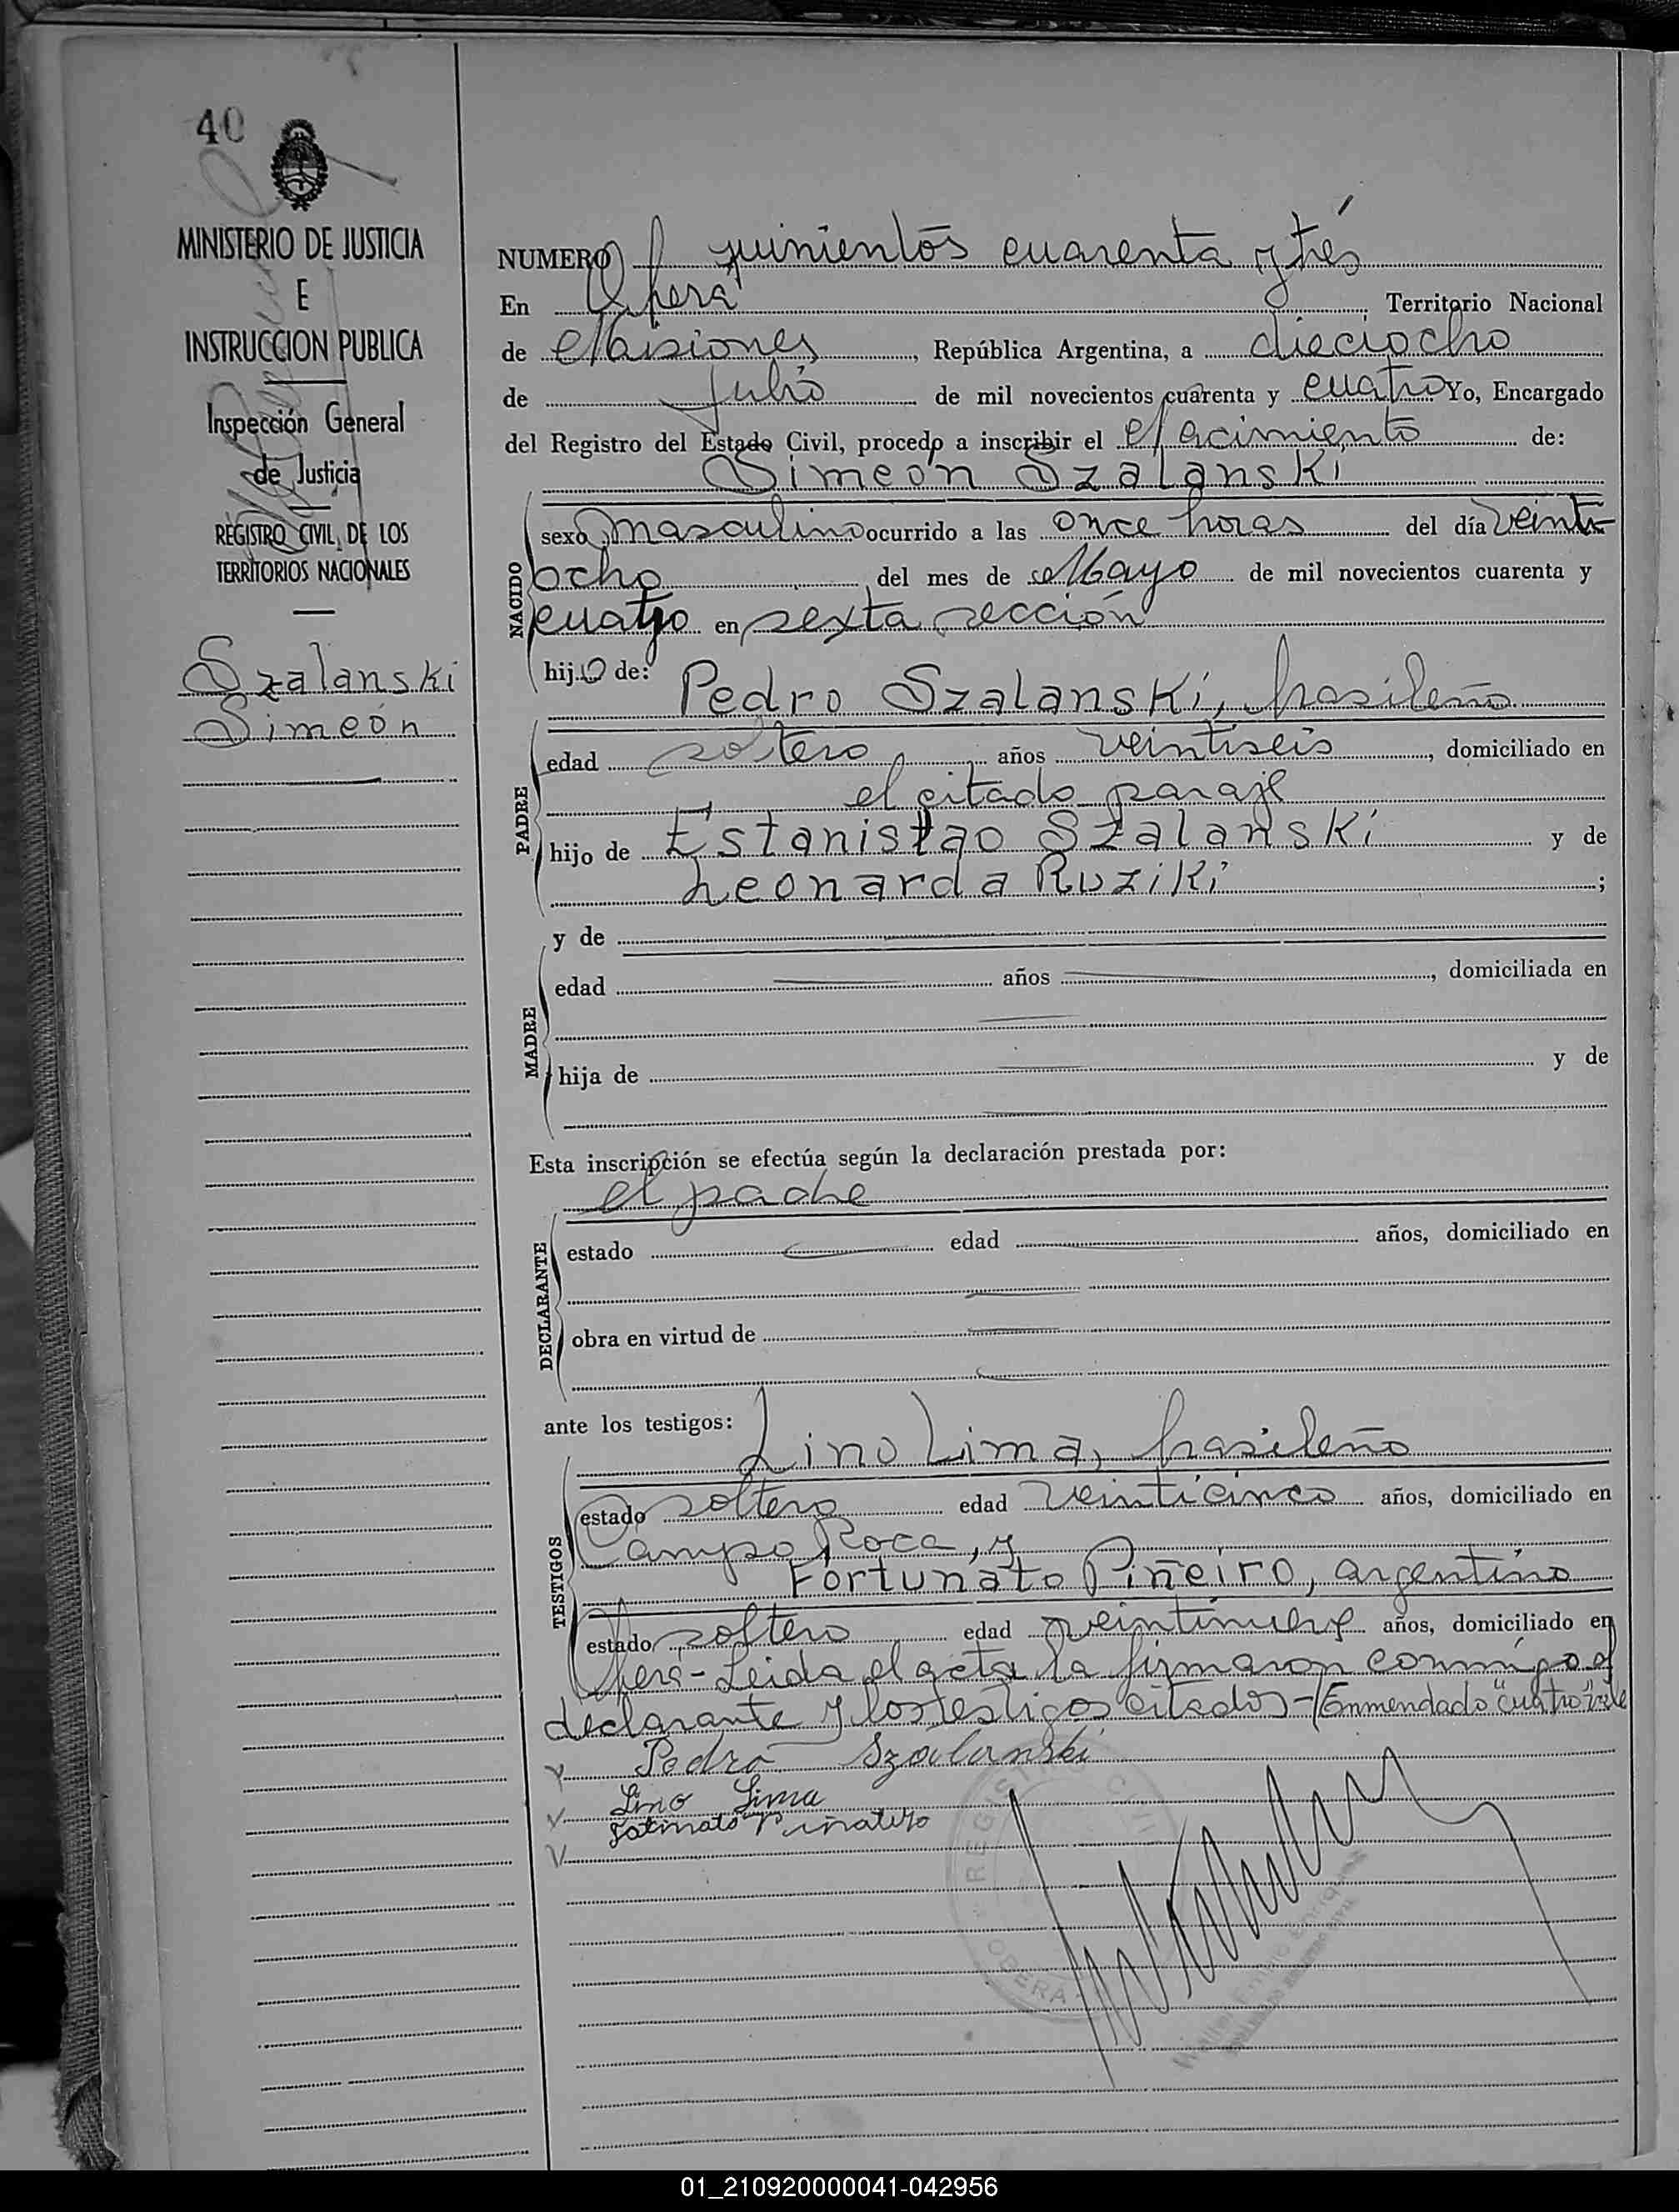 40
MINISTERIO DE JUSTICIA
E
INSTRUCCION PUBLICA
Inspección General
de Justicia
REGISTRO CIVIL DE LOS
TERRITORIOS NACIONALES
Szalanski
Simeón
NUMERO quinientos cuarenta y trés
En Oberá Territorio Nacional
de Misiones, República Argentina, a dieciocho
de Julio de mil novecientos cuarenta y cuatro Yo, Encargado
del Registro del Estado Civil, procedo a inscribir el Nacimiento de:
Simeón Szalanski
NACIDO
sexo masculino ocurrido a las once horas del día veinti
ocho del mes de Mayo de mil novecientos cuarenta y
cuatro en sexta sección
hijo de:
Pedro Szalanski, brasileño
PADRE
edad soltero años veintiseis, domiciliado en
el citado paraje
hijo de Estanislao Szalanski y de
Leonarda Ruziki;
y de
MADRE
edad años, domiciliada en
hija de y de
Esta inscripción se efectúa según la declaración prestada por:
el padre
DECLARANTE
estado edad años, domiciliado en
obra en virtud de
ante los testigos:
Lino Lima, brasileño
TESTIGOS
estado soltero edad veinticinco años, domiciliado en
Campo Roca, y
Fortunato Piñeiro, argentino
estado soltero edad veintinueve años, domiciliado en
Oberá - Leida el acta la firmaron conmigo el
declarante y los testigos citados - (Enmendado "cuatro" vale
Pedro Szalanski
Lino Lima
REGISTRO CIVIL
OBERA
01_210920000041-042956